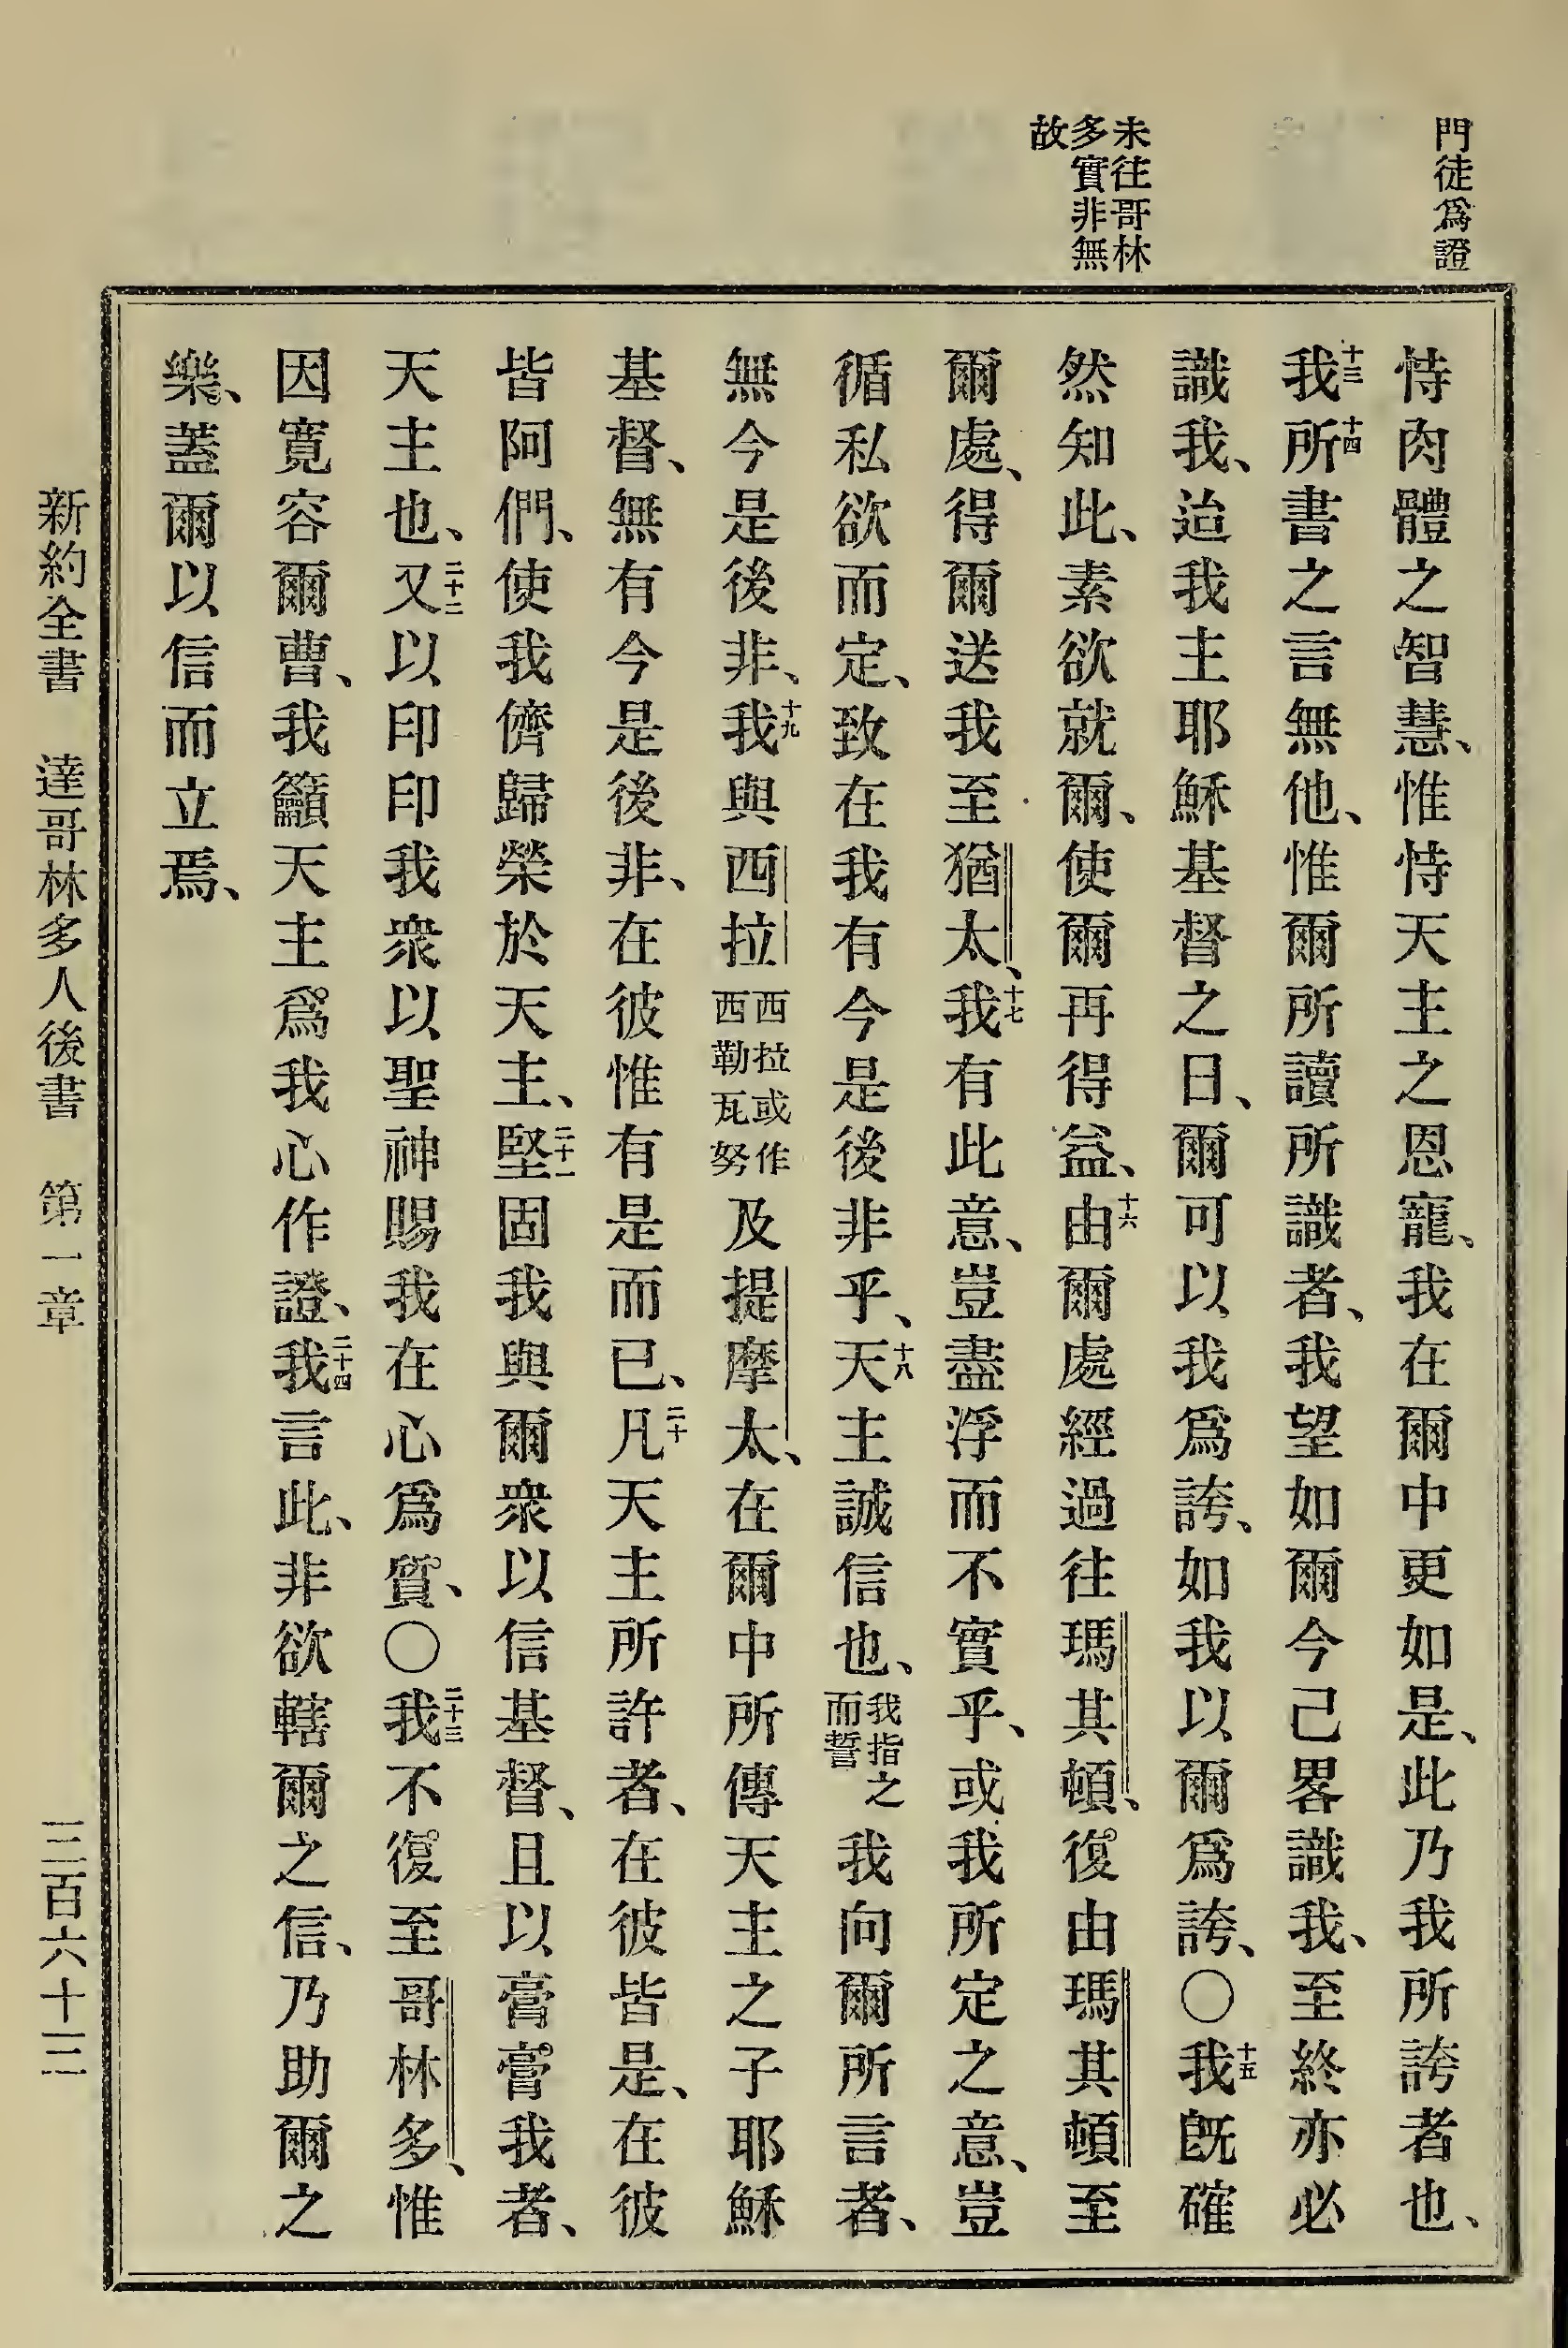 門徒爲證
未往哥林
多實非無
故
恃肉體之智慧、惟恃天主之恩寵、我在爾中更如是、此乃我所誇者也、
十三我十四所書之言無他、惟爾所讀所識者、我望如爾今己畧識我、至終亦必
識我、迨我主耶穌基督之日、爾可以我爲誇、如我以爾爲誇、〇十五我既確
然知此、素欲就爾、使爾再得益、十六由爾處經過往瑪其頓、復由瑪其頓至
爾處、得爾送我至猶太、十七我有此意、豈盡浮而不實乎、或我所定之意、豈
循私欲而定、致在我有今是後非乎、十八天主誠信也、我指之而誓我向爾所言者、
無今是後非、十九我與西拉西拉或作西勒瓦努及提摩太、在爾中所傳天主之子耶穌
基督、無有今是後非、在彼惟有是而已、二十凡天主所許者、在彼皆是、在彼
皆阿們、使我儕歸榮於天主、二十一堅固我與爾衆以信基督、且以膏膏我者、
天主也、二十二又以印印我衆以聖神賜我在心爲質、〇二十三我不復至哥林多、惟
因寬容爾曹、我籲天主爲我心作證、二十四我言此、非欲轄爾之信、乃助爾之
樂、蓋爾以信而立焉、
新約全書 達哥林多人後書 第一章 三百六十三